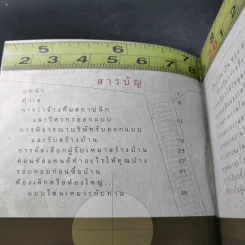 5 6
2 3 4 5 6 7
สารบัญ
บทนำ
ทำเล 5
การว่าจ้างทีมสถาปนิก
และวิศวกรออกแบบ 13
การพิจารณาบริษัทรับออกแบบ
และรับสร้างบ้าน 19
การคัดเลือกผู้รับเหมาสร้างบ้าน 23
คอนซัลแตนท์ทำอะไรให้คุณบ้าง 27
รอบคอบก่อนซื้อบ้าน 31
ห้องเล็กหรือห้องใหญ่...
แบบไหนเหมาะกับท่าน 35